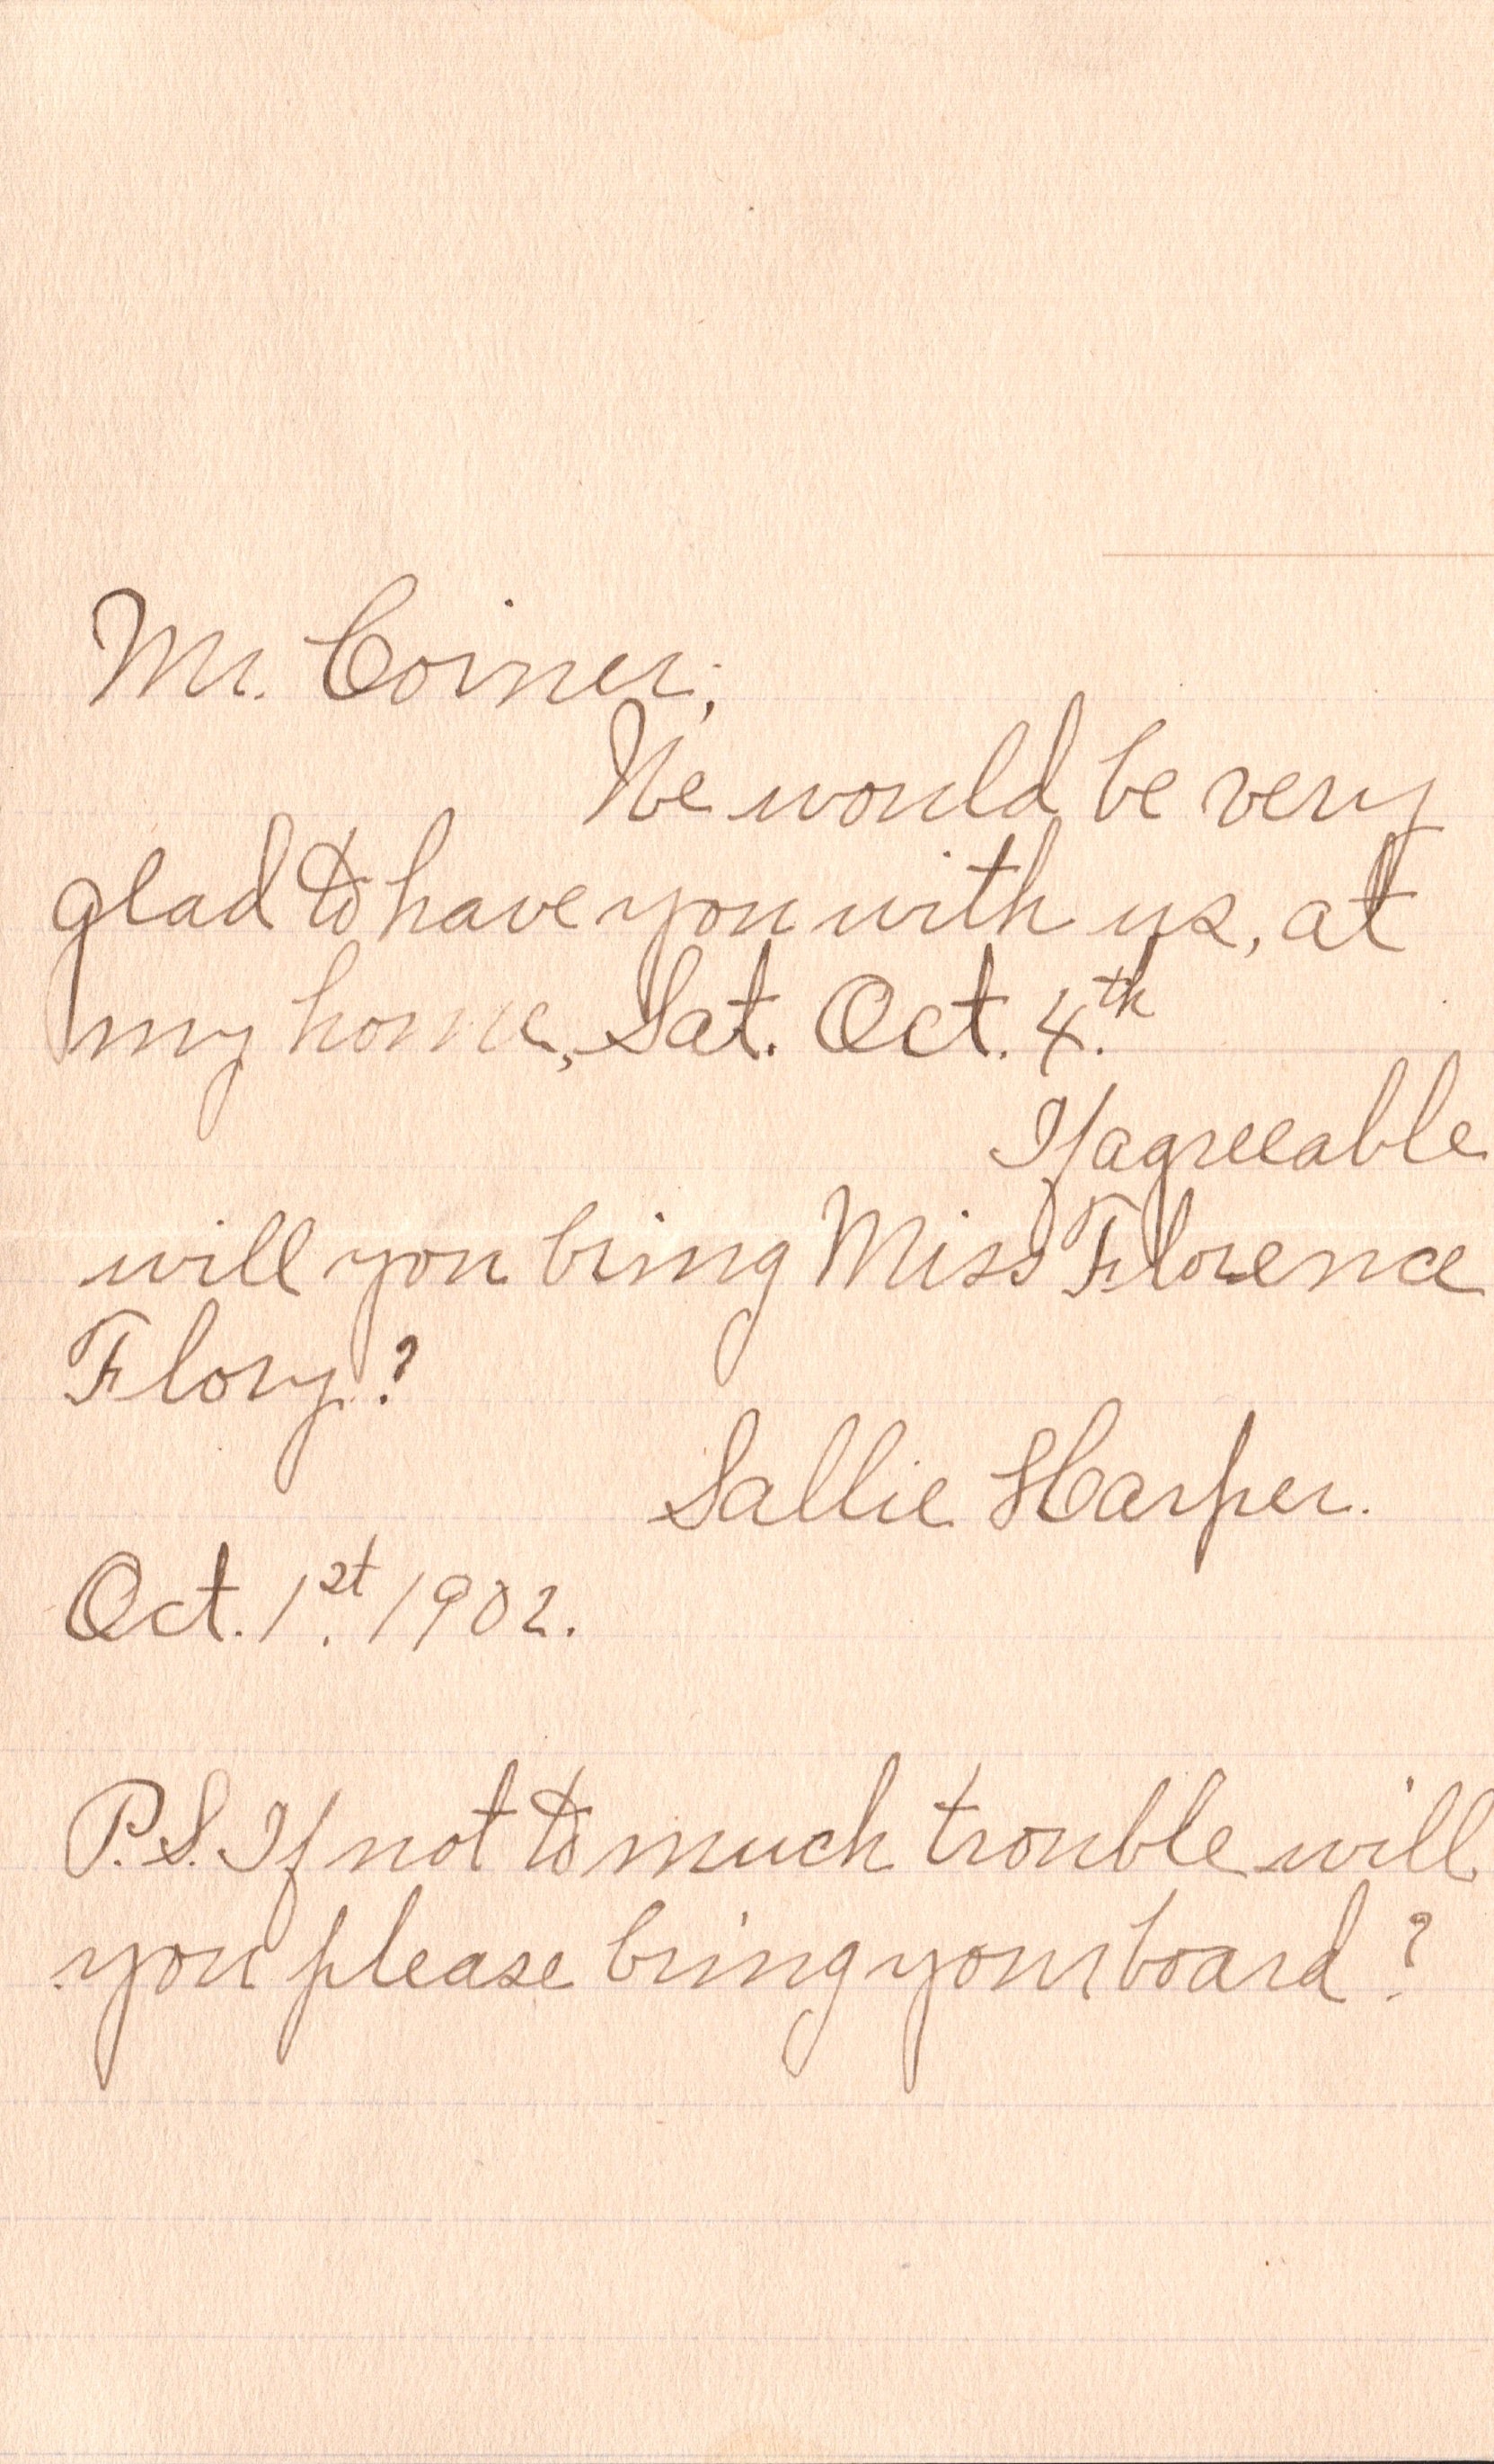 Mr. Coiner;
We would be very
glad to have you with us, at
my home, Sat. Oct. 4.th
If agreeable
will you bring Miss Florence
Flory?
Sallie Harper.
Oct. 1.st 1902.
P.S. If not to much trouble will
you please bring your board?